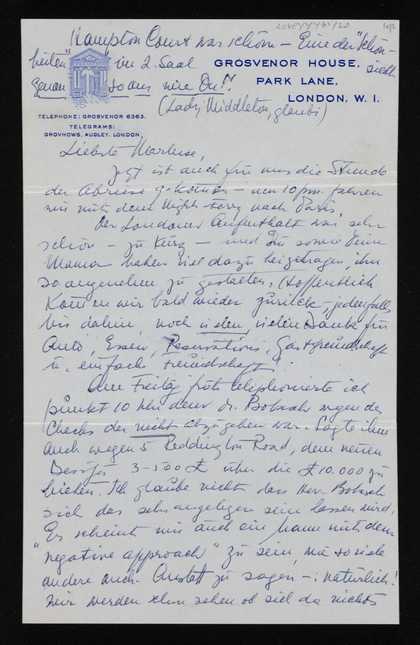 Hampton Court war schön – Eine der "Schön-
heiten" im 2. Saal sieht
genau so aus wie Du!!
(Lady Middleton, glaub i)
GROSVENOR HOUSE,
PARK LANE,
LONDON, W. 1.
TELEPHONE: GROSVENOR 6363.
TELEGRAMS:
GROVHOWS, AUDLEY, LONDON.
Liebste Marlise,
Jetzt ist auch für uns die Stunde
der Abreise gekommen – um 10 pm. fahren
wir mit dem Night ferry nach Paris.
Der Londoner Aufenthalt war sehr
schön – zu kurz – und Du sowie Deine
Mama haben viel dazu beigetragen, ihn
so angenehm zu gestalten. Hoffentlich
kommen wir bald wieder zurück – jedenfalls
bis dahin, noch vielen, vielen Dank für
Auto, Essen, Reservations, Gastfreundschaft
u. einfach Freundschaft!
Am Freitag früh telephonierte ich
punkt 10 Uhr dem Dr. wegen des
Checks der nicht abzugeben war. Sagte ihm
auch wegen 5 Reddington Road, dem neuen
Besitzer 3–500 £ über die £10.000 zu
bieten. Ich glaube nicht dass Herr
sich das sehr angelegen sein lassen wird.
Er scheint mir auch ein Mann mit dem
"negative approach" zu sein, wie so viele
andere auch. Anstatt zu sagen – : natürlich!
wir werden schon sehen ob sich da nichts